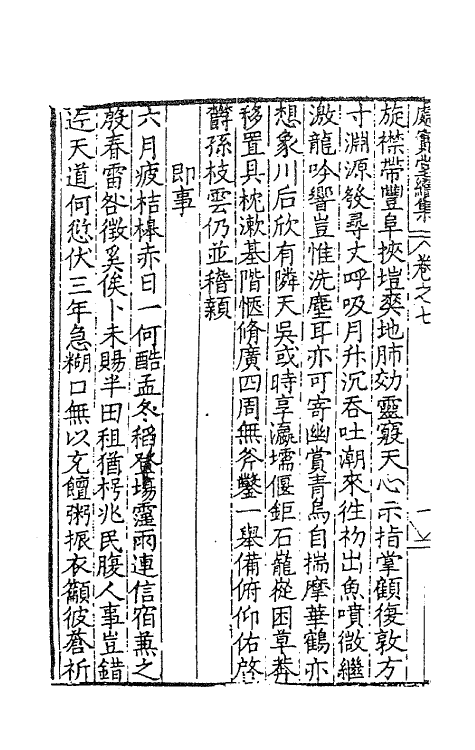 處實堂續集 卷之七
旋襟帶豐阜挾塏爽地肺効靈竅天心示指掌顧復敦方
寸淵源發尋丈呼吸月升沉吞吐潮來徃初出魚噴微繼
激龍吟響豈惟洗塵耳亦可寄幽賞青烏自揣摩華鶴亦
想象川后欣有隣天吳或時享瀛壖偃鉅石巃嵷困草莽
移置具枕漱基階愜脩廣四周無斧鑿一舉備俯仰佑啓
欝孫枝雲仍並稽顙
即事
六月疲桔槹赤日一何酷孟冬稻登場霪雨連信宿兼之
殷春雷咎徵奚俟卜未賜半田租猶枵兆民腹人事豈錯
迕天道何愆伏三年急糊口無以充饘粥振衣籲彼蒼祈